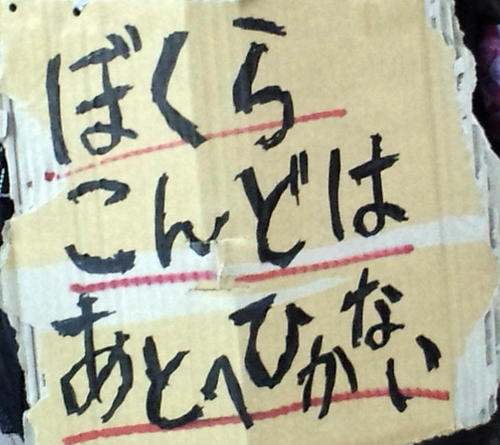 ぼくら
こんどは
あとへひかない